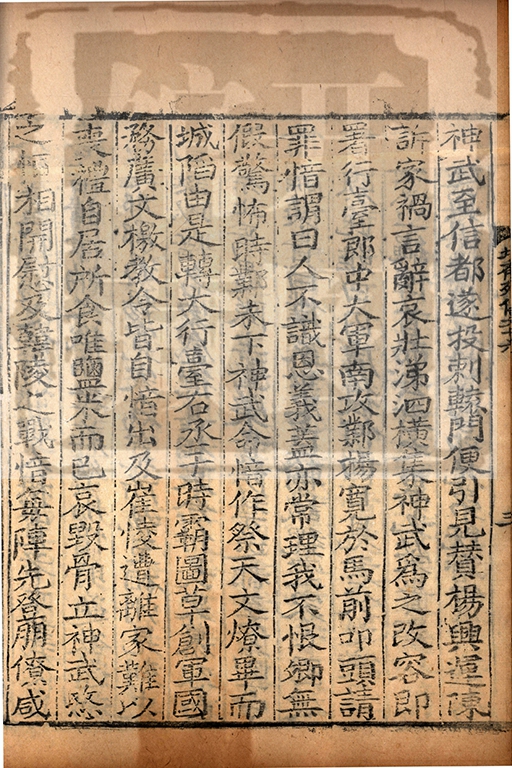 神武至信都遂投刺轅門便引見賛楊興運陳
訴家禍言辭哀壯涕泗橫集神武爲之改容即
署行臺郎中大軍南攻鄴楊寬於馬前叩頭請
罪愔謂曰人不識恩義蓋亦常理我不恨卿無
假驚怖時鄴未下神武命愔作祭天文燎畢而
城陷由是轉大行臺右丞于時霸圖草創軍國
務廣文檄教令皆自愔出及崔㥄遭離家難以
喪禮自居所食唯鹽米而已哀毀骨立神武愍
之恒相開慰及韓陵之戰愔每陣先登朋僚咸
北齊列傳二十六
三